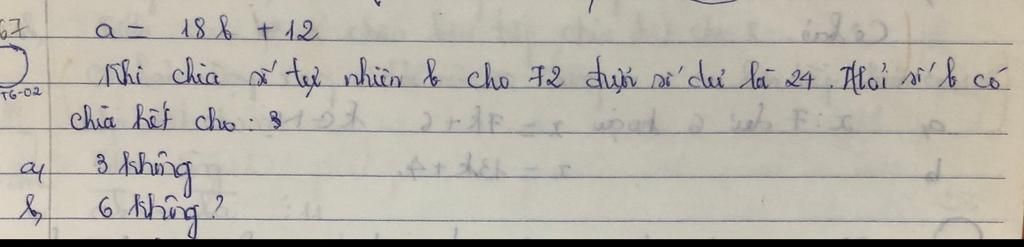 67
a = 18k + 12
Khi chia số tự nhiên b cho 72 được số dư là 24. Hỏi số b có
TG-02
chia hết cho: 3
a, 3 không
b, 6 không?